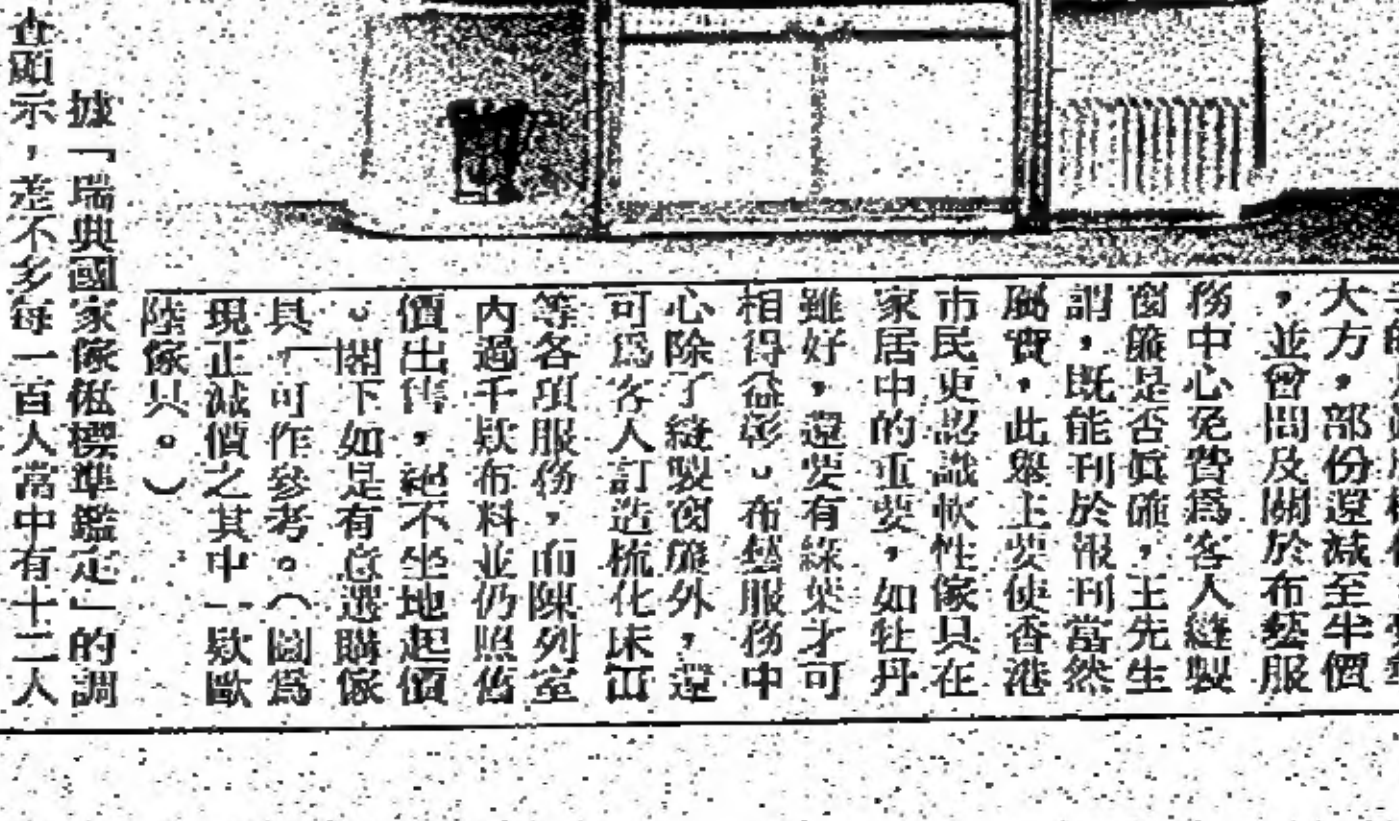 大方，部份還減至半價
，並曾問及關於布藝服
務中心免費爲客人縫製
窗簾是否眞確，王先生
謂，既能刊於報刊當然
屬實，此舉主要使香港
市民更認識軟性傢具在
家居中的重要，如牡丹
雖好，還要有綠葉才可
相得益彰。布藝服務中
心除了縫製窗簾外，還
可爲客人訂造梳化床冚
等各項服務，而陳列室
內過千欵布料並仍照舊
價出售，絕不坐地起價
。閣下如是有意選購傢
具，可作參考。（圖爲
現正減價之其中一欵歐
陸傢具。）
據「瑞典國家傢俬標準鑑定」的調
查顯示，差不多每一百人當中有十二人